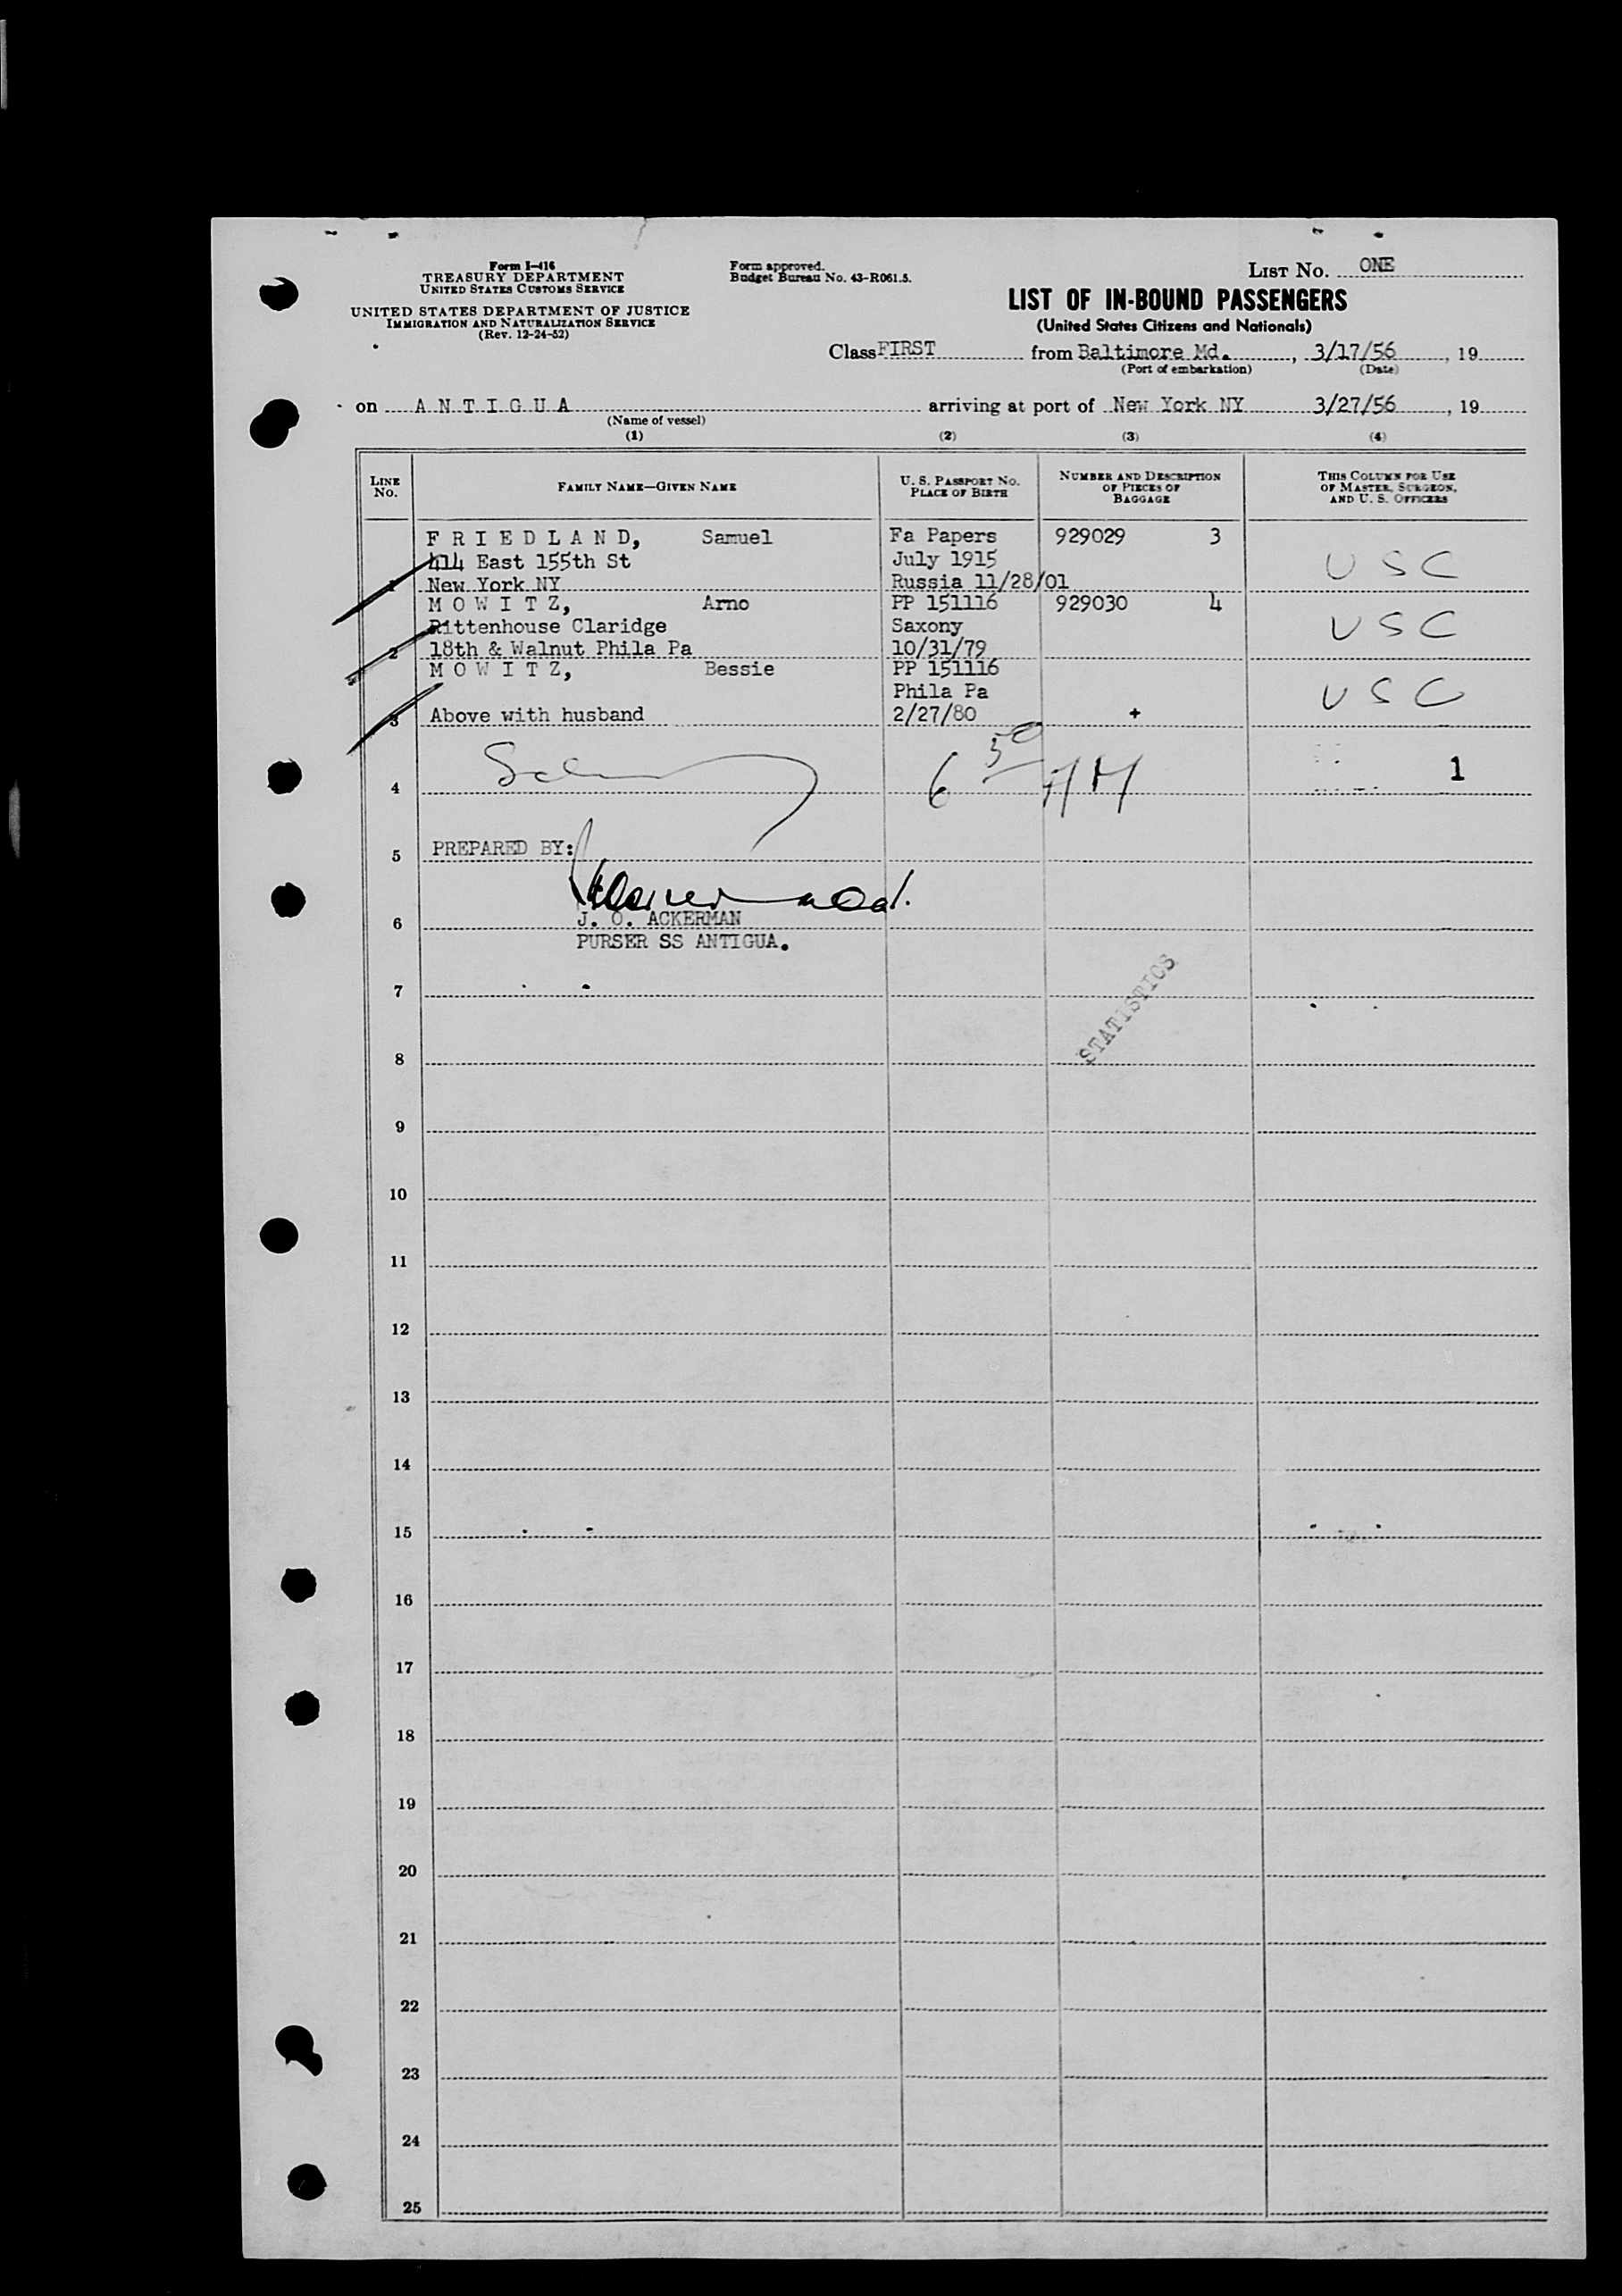 Form I-416
TREASURY DEPARTMENT
UNITED STATES CUSTOMS SERVICE
UNITED STATES DEPARTMENT OF JUSTICE
IMMIGRATION AND NATURALIZATION SERVICE
(Rev. 12-24-52)
Form approved.
Budget Bureau No. 43-R061.5.
LIST NO. ONE
LIST OF IN-BOUND PASSENGERS
(United States Citizens and Nationals)
Class FIRST from Baltimore Md. , 3/17/56 , 19
(Port of embarkation) (Date)
on A N T I G U A arriving at port of New York NY 3/27/56 , 19
(Name of vessel)
(1) (2) (3) (4)
LINE NO.
FAMILY NAME—GIVEN NAME
U. S. PASSPORT NO.
PLACE OF BIRTH
NUMBER AND DESCRIPTION
OF PIECES OF
BAGGAGE
THIS COLUMN FOR USE
OF MASTER, SURGEON,
AND U. S. OFFICERS
F R I E D L A N D, Samuel Fa Papers 929029 3
414 East 155th St July 1915 USC
1 New York NY Russia 11/28/01
M O W I T Z, Arno PP 151116 929030 4
Rittenhouse Claridge Saxony USC
2 18th & Walnut Phila Pa 10/31/79
M O W I T Z, Bessie PP 151116
Phila Pa USC
3 Above with husband 2/27/80 +
4 6 50 AM 1
5 PREPARED BY:
6 J. O. ACKERMAN
PURSER SS ANTIGUA.
7
STATISTICS
8
9
10
11
12
13
14
15
16
17
18
19
20
21
22
23
24
25